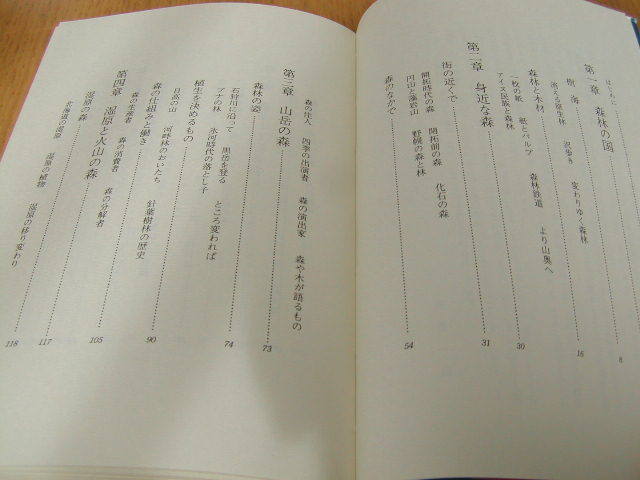 はじめに 8
第一章 森林の国
樹海 16
消える原生林 沢歩き 変わりゆく森林
森林と木材 30
一枚の紙 紙とパルプ 森林鉄道 より山奥へ
アイヌ民族と森林
第二章 身近な森 31
街の近くで
開拓時代の森 開拓前の森 化石の森
円山と藻岩山 野幌の森と林
森のなかで 54
森の住人 四季の出演者 森の演出家 森や木が語るもの
第三章 山岳の森 73
森林の姿 74
石狩川に沿って 黒岳を登る ところ変われば
ブナの林 氷河時代の落とし子
植生を決めるもの 90
日高の山 河畔林のおいたち 針葉樹林の歴史
森の仕組みと働き 105
森の生産者 森の消費者 森の分解者
第四章 湿原と火山の森 117
湿原の森 118
北海道の湿原 湿原の植物 湿原の移り変わり